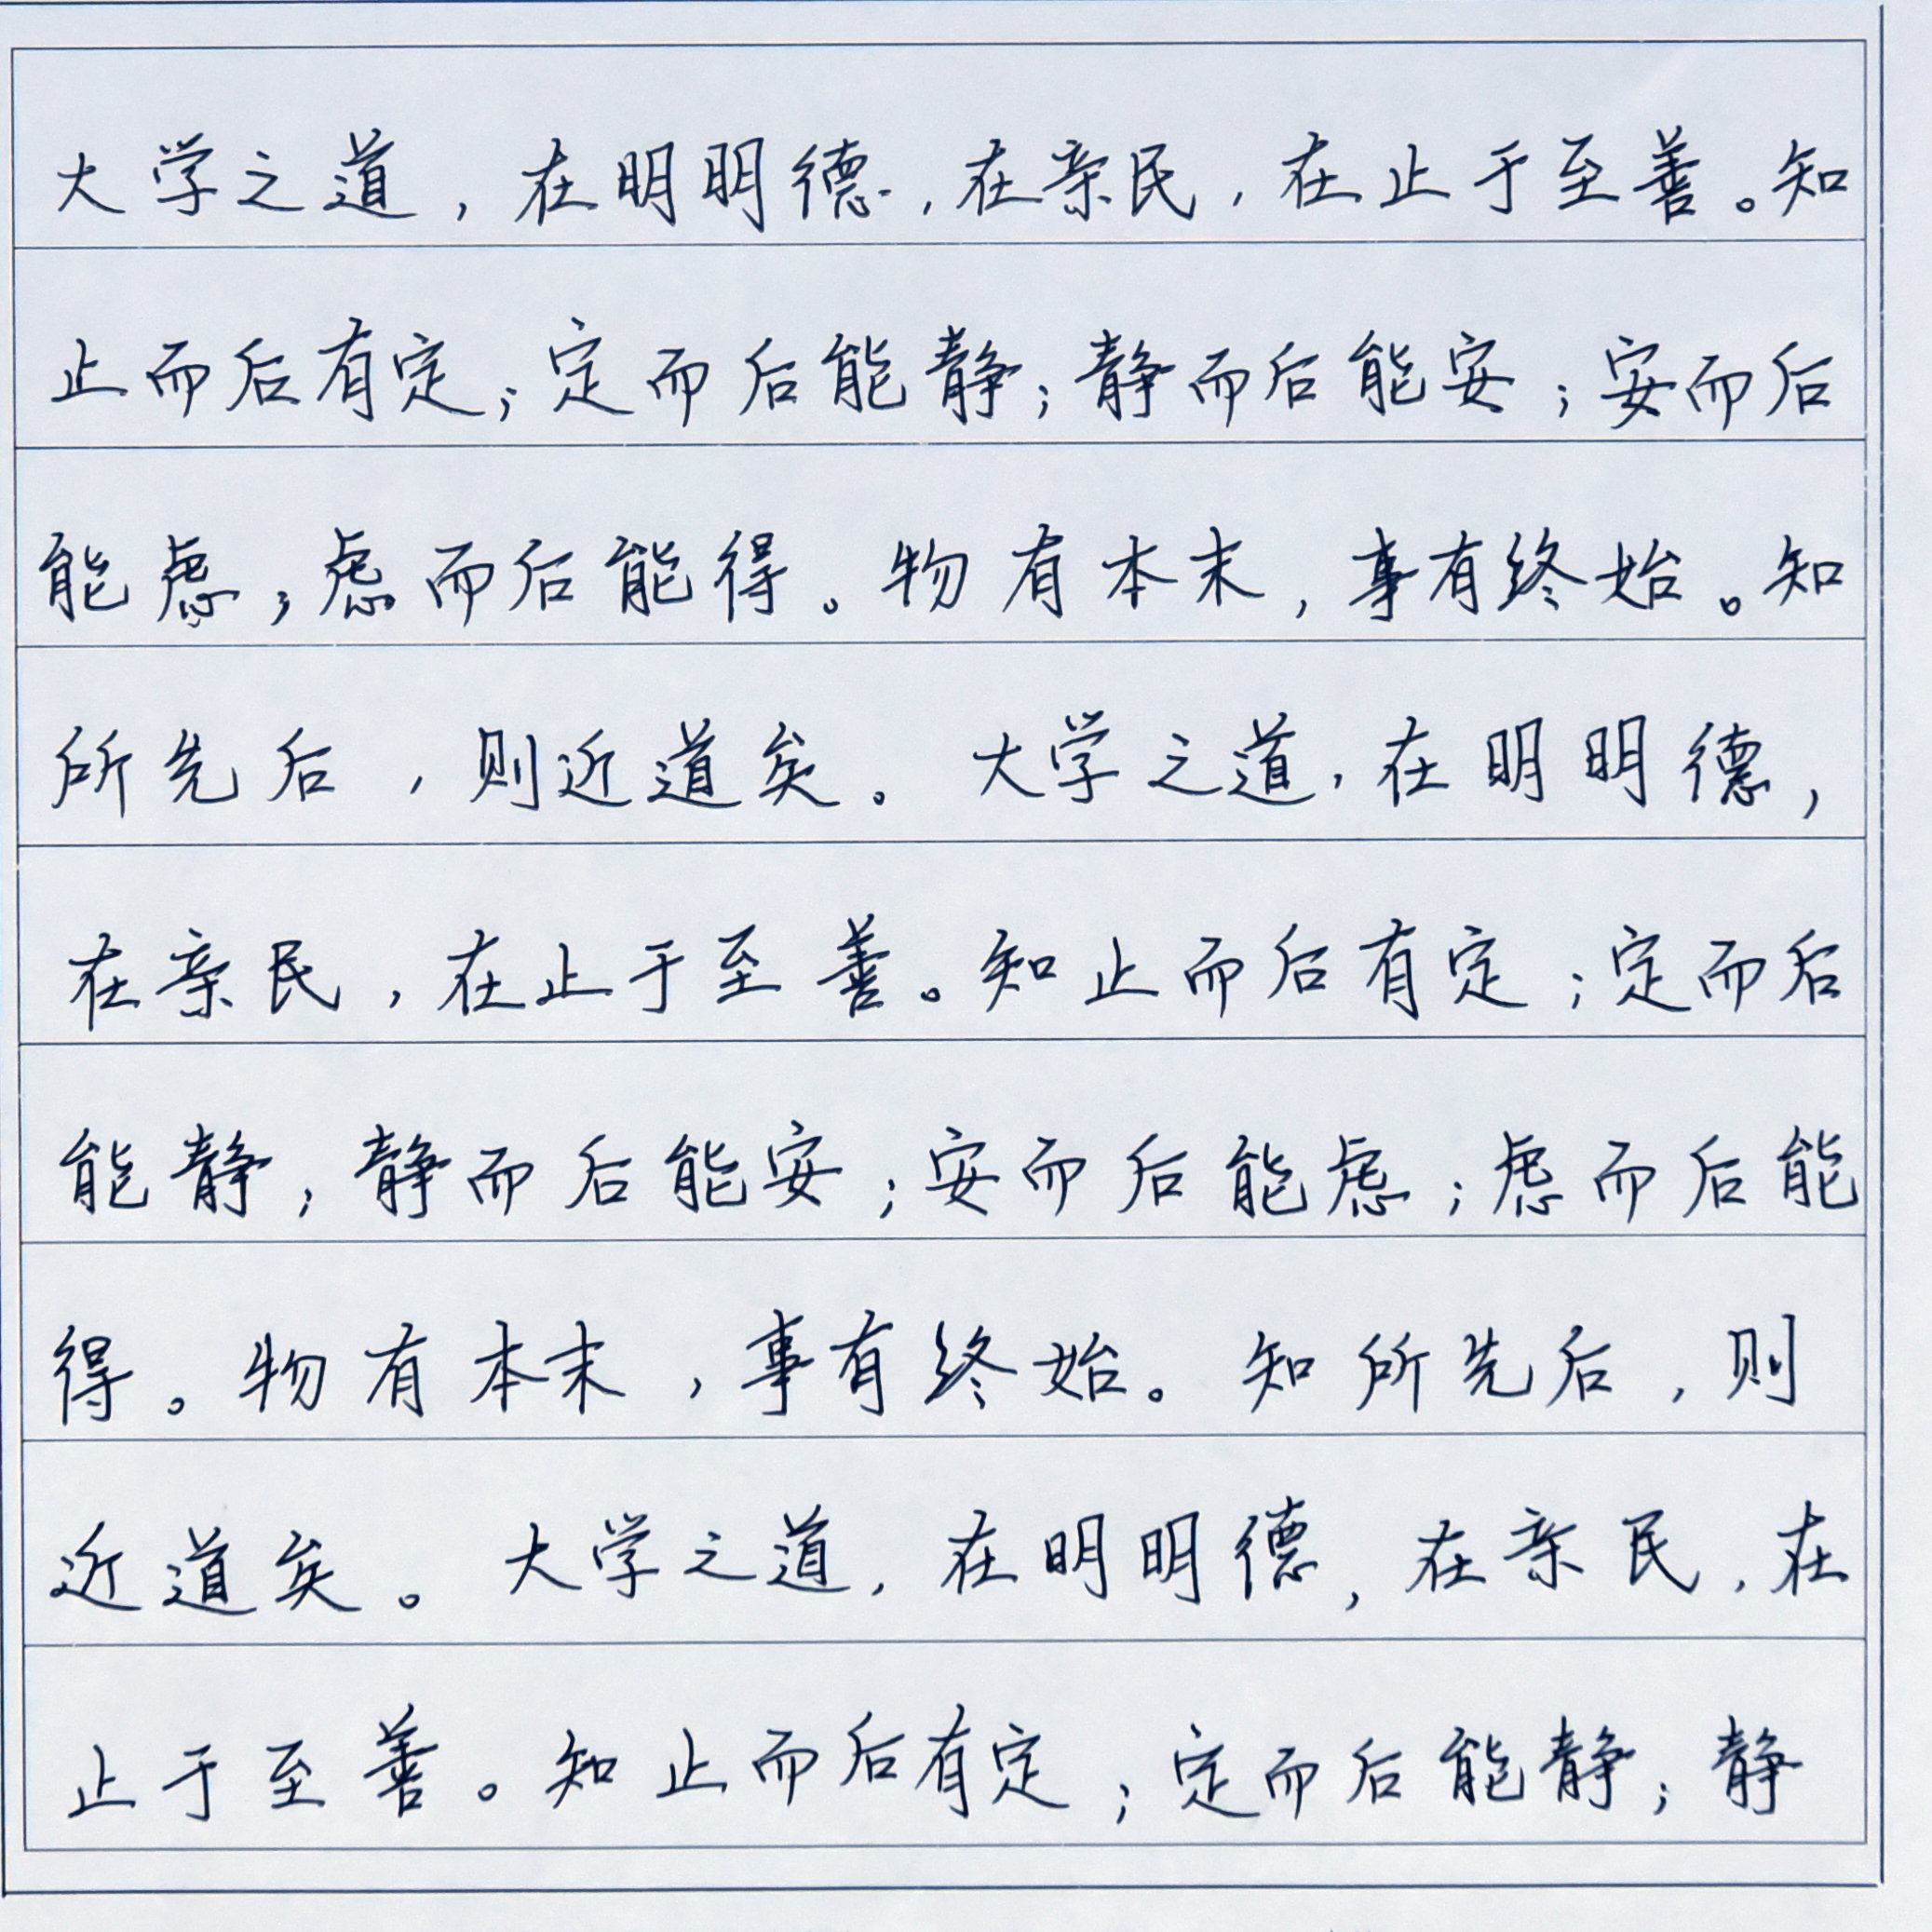 大学之道，在明明德，在亲民，在止于至善。知
止而后有定；定而后能静；静而后能安；安而后
能虑；虑而后能得。物有本末，事有终始。知
所先后，则近道矣。大学之道，在明明德，
在亲民，在止于至善。知止而后有定；定而后
能静；静而后能安；安而后能虑；虑而后能
得。物有本末，事有终始。知所先后，则
近道矣。大学之道，在明明德，在亲民，在
止于至善。知止而后有定；定而后能静；静